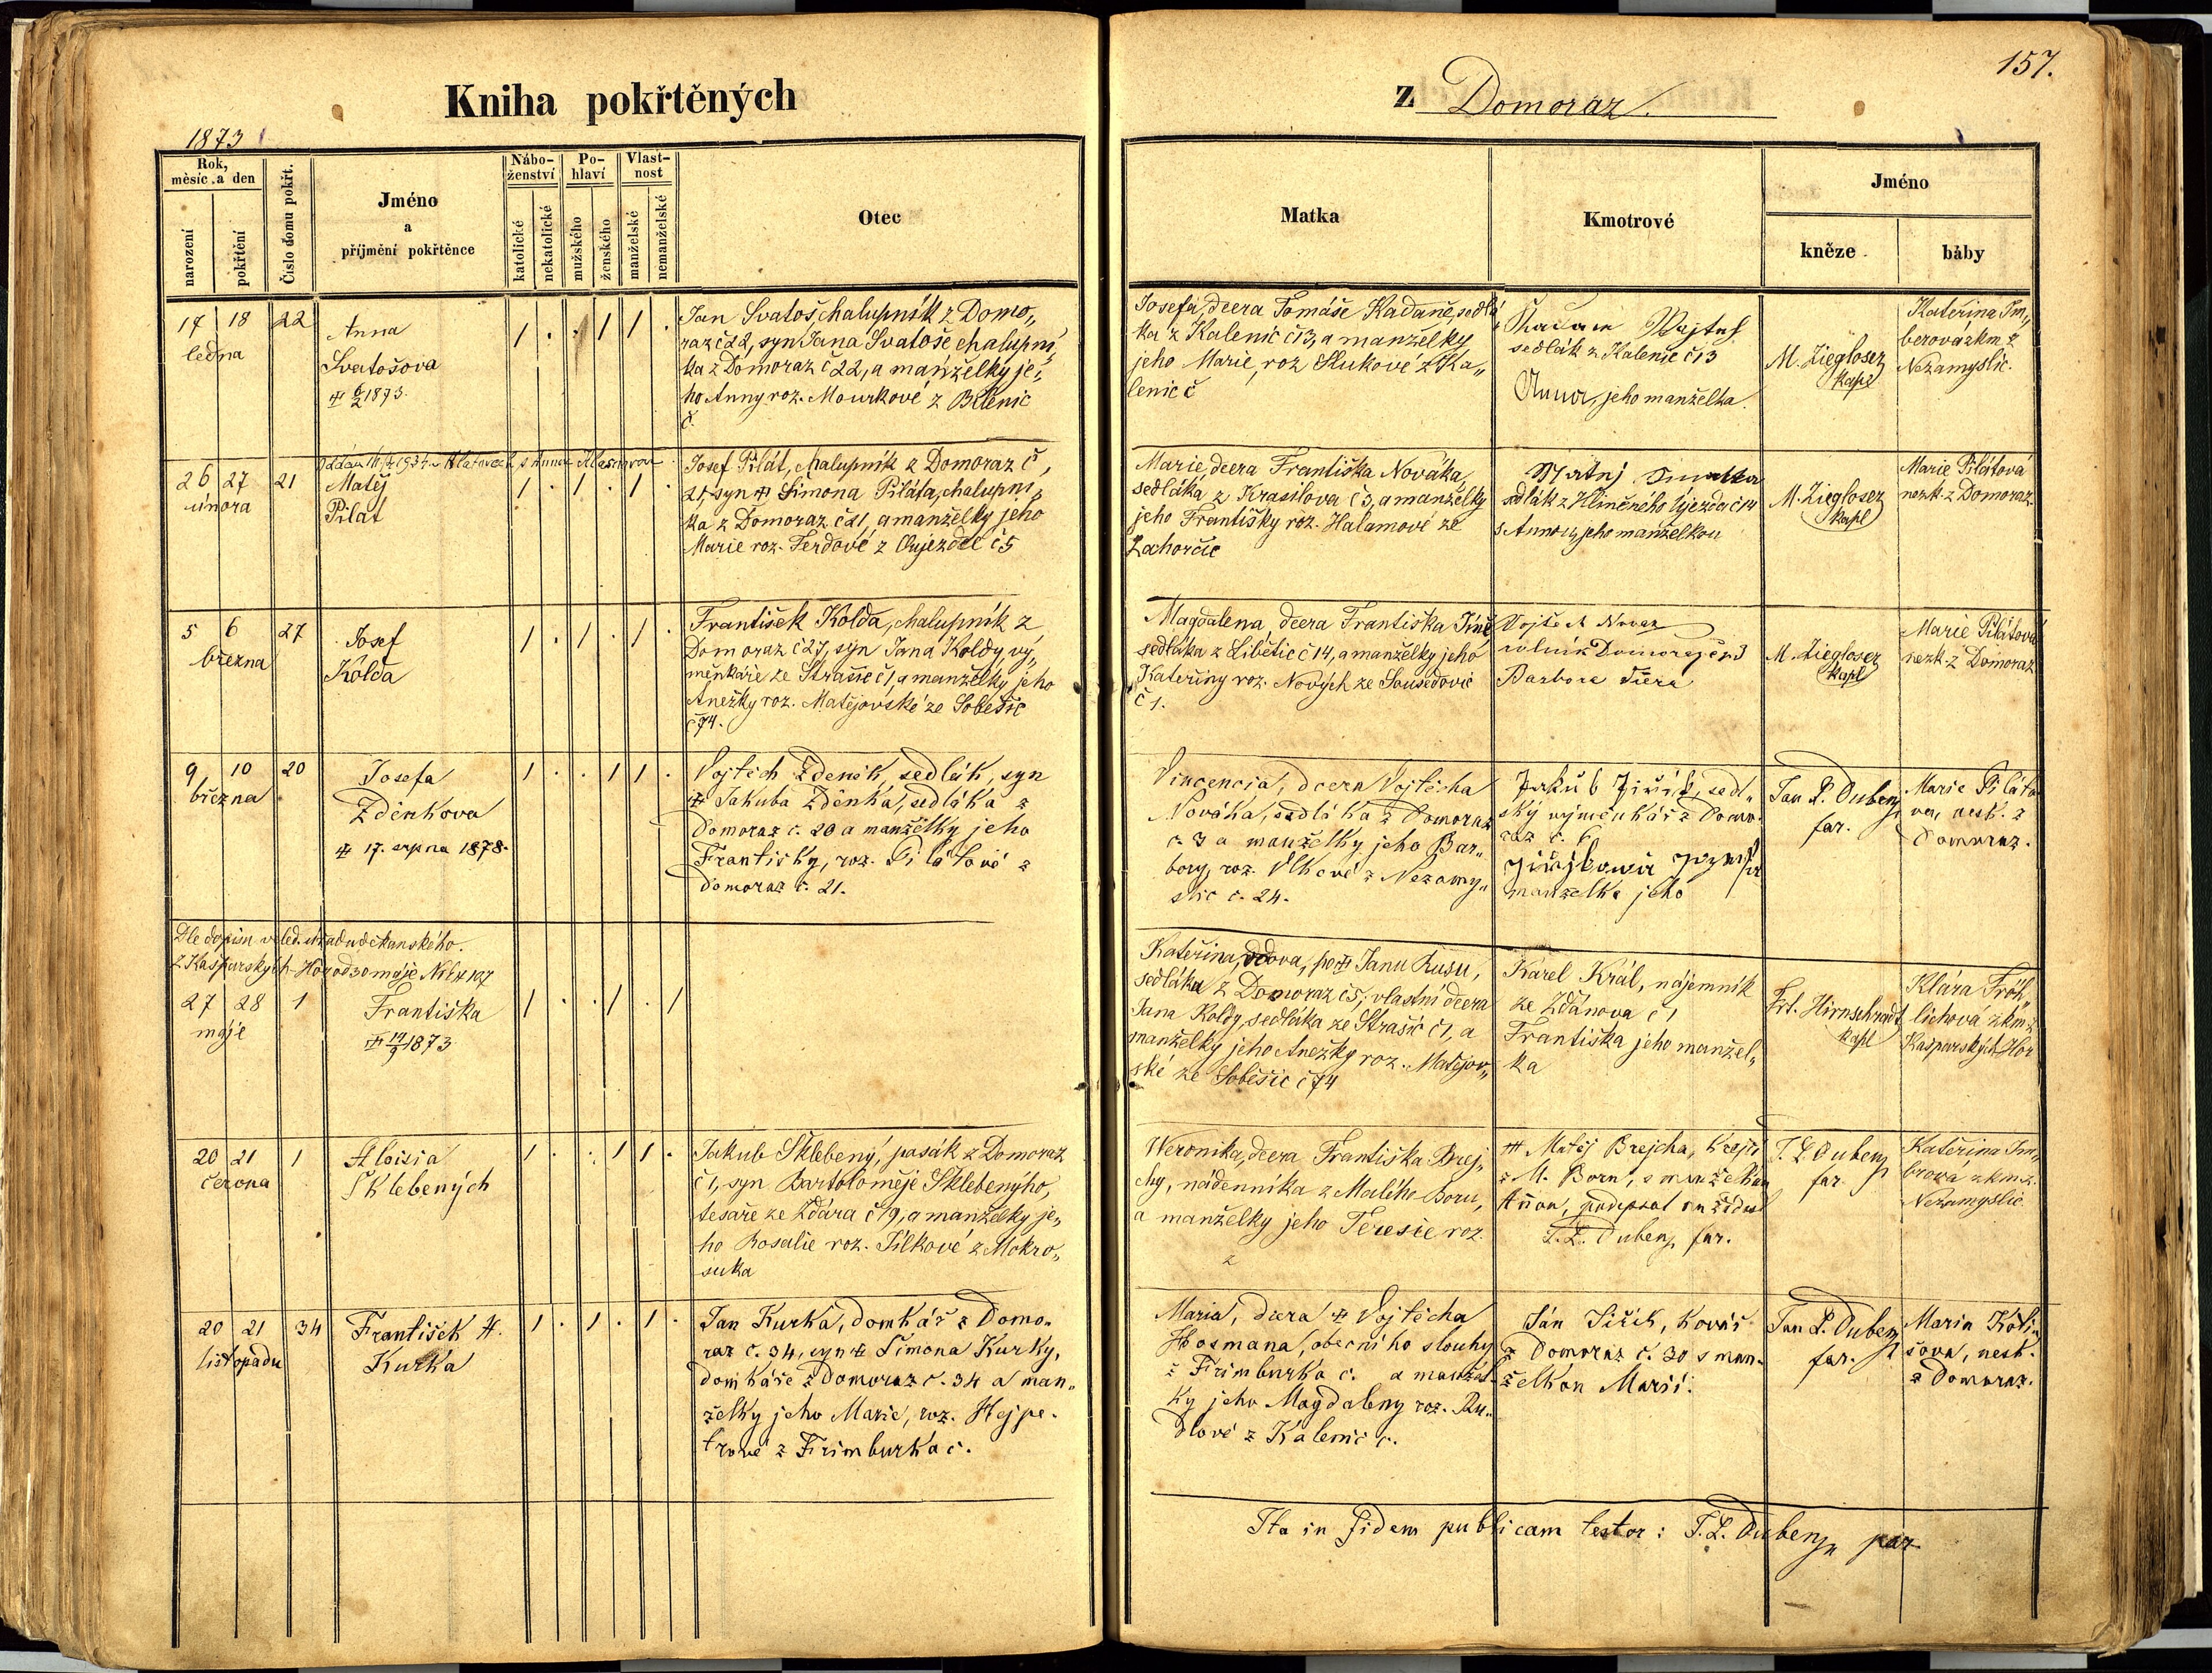 Kniha pokřtěných
z Domoraz.
157.
1873
Rok,
měsíc a den
narození
pokřtění
Číslo domu pokřt.
Jméno
a
příjmění pokřtěnce
Nábo-
ženství
katolické
nekatolické
Po-
hlaví
mužského
ženského
Vlast-
nost
manželské
nemanželské
Otec
Matka
Kmotrové
Jméno
kněze
báby
17 18 22
ledna
Anna
Svatošova
1873.
1 . . 1 1 .
Jan Svatoš chalupník z Domo„
raz č 22, syn Jana Svatoše chalupní„
ka z Domoraz č 22, a manželky je„
ho Anny roz. Mourkové z Bílenic
č.
Josefa, dcera Tomáše Kadaně, sedlá„
ka z Kalenic č 13, a manželky
jeho Marie, roz. Slukové z Ka„
lenic č
sedlák z Kalenic č 13
Anna, jeho manželka.
M. Ziegloser
kapl
Kateřina Im„
berová zkm z
Nezamyslic.
26 27 21
února
Matěj
Pilát
1 . 1 . 1 .
Josef Pilát, chalupník z Domoraz č,
21, syn Šimona Piláta, chalupní„
ka z Domoraz č 21, a manželky jeho
Marie roz. Ferdové z Oujezdce č 5
Marie, dcera Františka Nováka,
sedláka z Krasilova č 3, a manželky
jeho Františky roz. Halamové ze
Zahorčic
sedlák z Hliněného Újezda č 14
s Annou, jeho manželkou
M. Ziegloser
kapl
Marie Pilátová
nezk. z Domoraz.
5 6 27
března
Josef
Kolda
1 . 1 . 1 .
František Kolda, chalupník z
Domoraz č 27, syn Jana Koldy, vý„
měnkáře ze Strašic č 1, a manželky jeho
Anežky roz. Matějovské ze Soběšic
č 74.
Magdalena, dcera Františka
sedláka z Libětic č 14, a manželky jeho
Kateřiny roz. Nových ze Sousedovic
č 1.
Vojtěch Novák
rolník
Barbora
M. Ziegloser
kapl
Marie Pilátová
nezk. z Domoraz
9 10 20
března
Josefa
Zdeňkova
17. srpna 1878.
1 . . 1 1 .
Vojtěch Zdeněk, sedlák, syn
Jakuba Zdeňka, sedláka z
Domoraz č. 20 a manželky jeho
Františky, roz. Pilátové z
Domoraz č. 21.
Vincencia, dcera Vojtěcha
Nováka, sedláka z Domoraz
č. 3 a manželky jeho Bar„
bory, roz. Vlkové z Nezamy„
slic č. 24.
Jakub Jiřík, sedl„
ský výměnkář z Domo„
raz č. 6.
manželka jeho
Jan L. Dubenz
far.
Marie Piláto
va, nesk. z
Domoraz.
Dle dopisu
z Kašperských Hor od 30 máje
27 28 1
máje
Františka
1873
1 . . 1 . 1
Kateřina, vdova, po Janu Rusu,
sedláka z Domoraz č 5, vlastní dcera
Jana Koldy, sedláka ze Strašic č 1, a
manželky jeho Anežky roz. Matějov„
ské ze Soběšic č 74
Karel Král, nájemník
ze Ždánova č 1
Františka jeho manžel„
ka
Frt. Hirnschrodt
kapl
Klára Fröh„
lichová zkm z
Kašperských Hor
20 21 1
června
Aloisia
Šklebených
1 . . 1 1 .
Jakub Šklebený, pasák z Domoraz
č 1, syn Bartoloměje Šklebenýho,
tesaře ze Ždára č 19, a manželky je„
ho Rosalie roz. Tílkové z Mokro„
suka
Weronika, dcera Františka Brej„
chy, nádenníka z Malého Boru,
a manželky jeho Teresie roz.
z
Matěj Brejcha, krejčí
z M. Boru, s manželkou
Annou, podepsal
T. L. Dubenz, far.
T. L. Dubenz
far.
Kateřina Im„
brová zkm z
Nezamyslic
20 21 34
listopadu
František
Kurka
1 . 1 . 1 .
Jan Kurka, domkář z Domo„
raz č. 34, syn Šimona Kurky,
domkáře z Domoraz č. 34 a man„
želky jeho Marie, roz. Hejpe„
trové z Frimburka č.
Maria, dcera Vojtěcha
Hosmana, obecního slouhy
z Frimburka č. a manžel„
ky jeho Magdaleny roz. Ru„
dlové z Kalenic č.
Ján Jiřík, kovář
z Domoraz č. 30 s man„
želkou Marií.
Jan L. Dubenz
far.
Maria Kóli„
šova, nesk.
z Domoraz.
Ita in fidem publicam testor: T. L. Dubenz, par